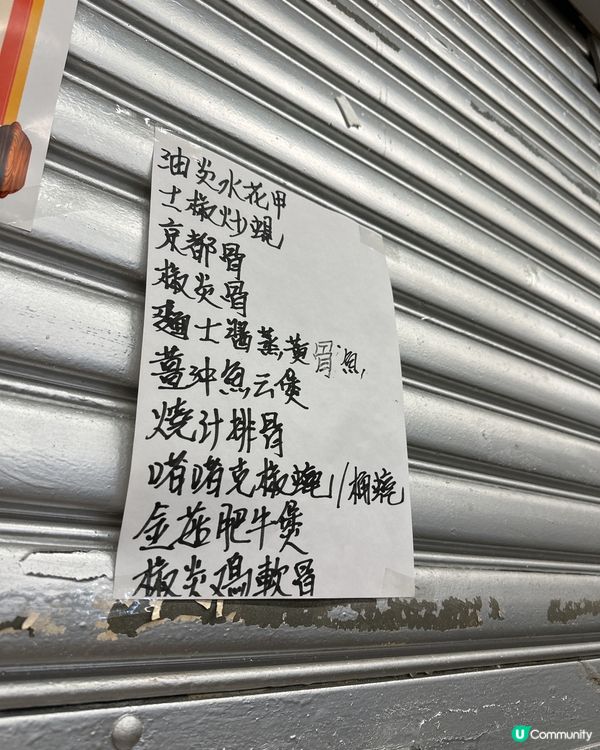 油炎水花甲
士椒炒蜆
京都骨
椒炎骨
麵士醬蒸黄骨魚
薑冲魚云煲
燒汁排骨
啫啫克椒 / 桶
金菇肥牛煲
椒炎鸡軟骨
U Community